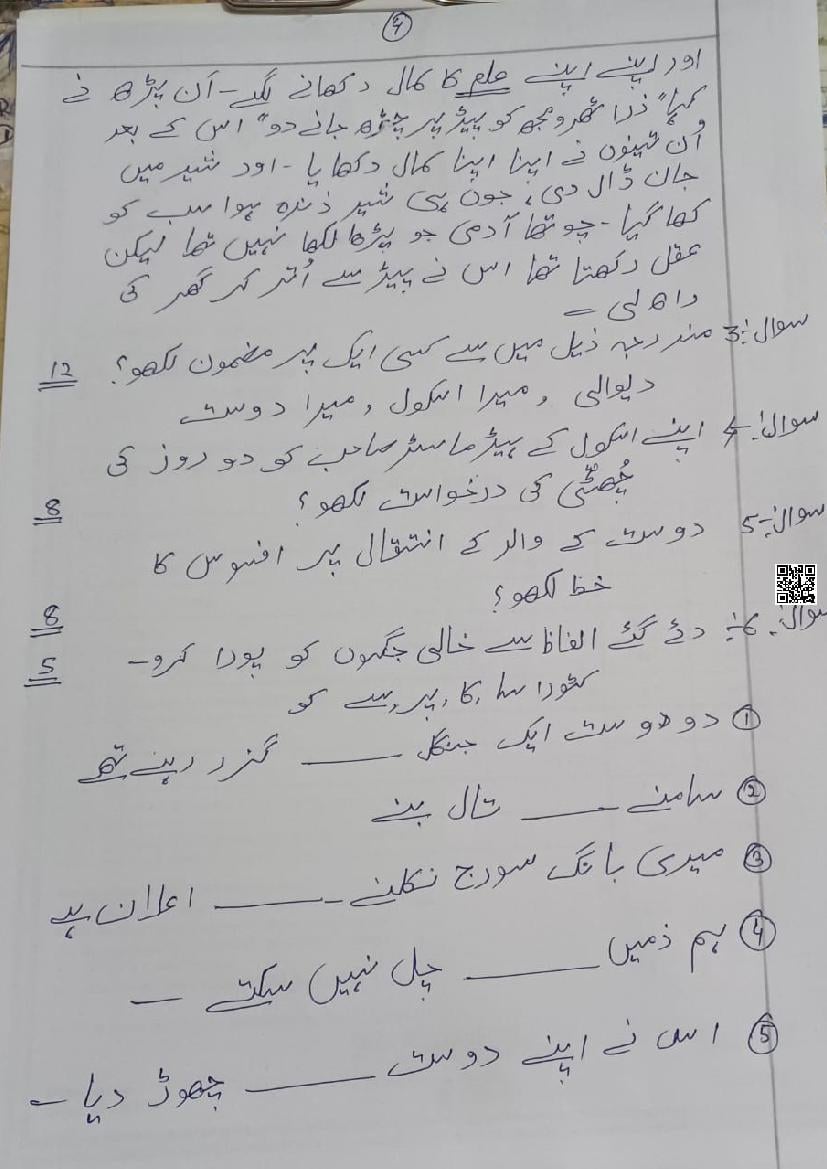 ④
اور اپنے اپنے علم کا کمال دکھانے لگے۔ ان پڑھ نے
کہا "ذرا ٹھرو مجھ کو پیڑ پر چڑھ جانے دو" اس کے بعد
اُن تینوں نے اپنا اپنا کمال دکھایا ۔ اور شیر میں
جان ڈال دی، جون ہی شیر ذندہ ہوا سب کو
کھا گیا ۔ چوتھا آدمی جو پڑھا لکھا نہیں تھا لیکن
عقل رکھتا تھا اس نے پیڑ سے اُتر کر گھر کی
راھ لی ۔
سوال:3 مندرجہ ذیل میں سے کسی ایک پر مضمون لکھو؟ 12
دیوالی , میرا اسکول , میرا دوست
سوال:4 اپنے اسکول کے ہیڈ ماسٹر صاحب کو دو روز کی
چُھٹّی کی درخواست لکھو؟ 8
سوال:5 دوست کے والد کے انتقال پر افسوس کا
خط لکھو؟ 8
سوال:6 دئے گئے الفاظ سے خالی جگہوں کو پورا کرو۔ 5
کٹورا سا, کا, پر, سے کو
① دو دوست ایک جنگل ____ گزر رہے تھے
② سامنے ____ تال ہے
③ میری بانگ سورج نکلنے ____ اعلان ہے
④ ہم ذمیں ____ چل نہیں سکتے ۔
⑤ اس نے اپنے دوست ____ چھوڑ دیا ۔